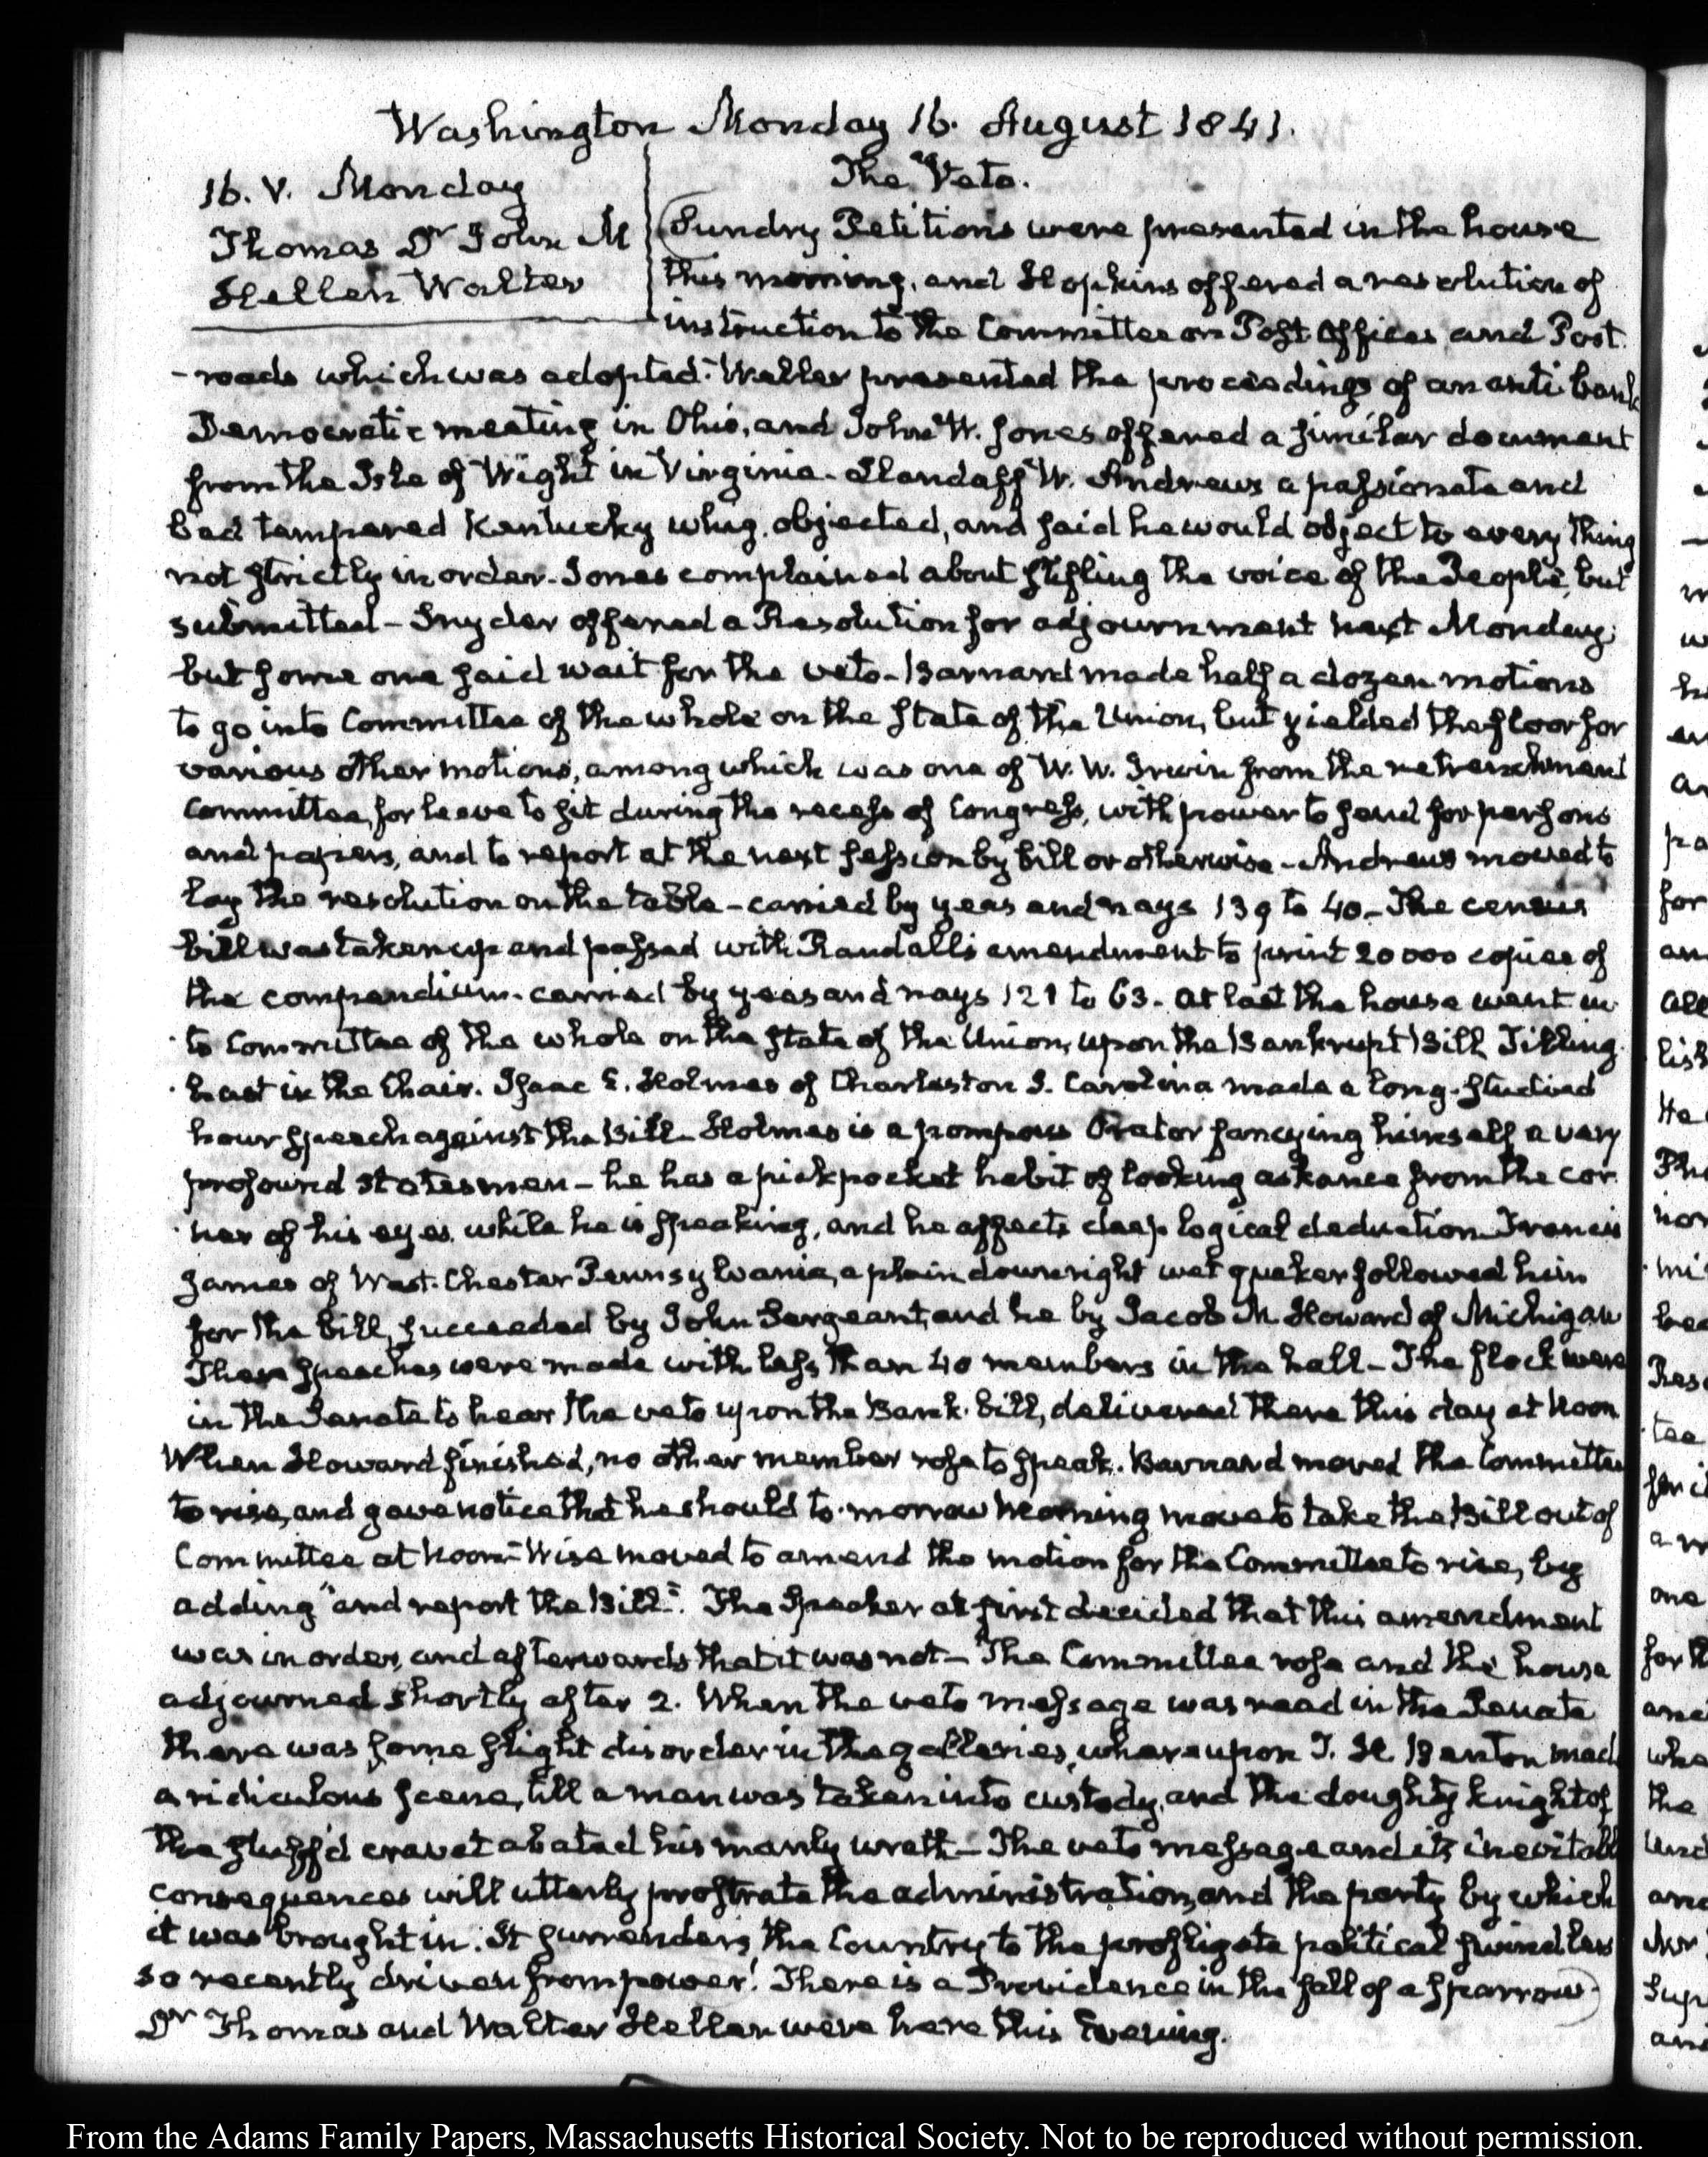 Washington Monday 16. August 1841.
16. V. Monday
Thomas Dr John M
Hellen Walter
The Veto.
Sundry Petitions were presented in the house
this morning, and Hopkins offered a resolution of
instruction to the Committee on Post Offices and Post
-roads which was adopted. Weller presented the proceedings of an anti bank
Democratic meeting in Ohio, and John W. Jones offered a similar document
from the Isle of Wight in Virginia. Landaff W. Andrews a passionate and
bad tempered Kentucky whig, objected, and said he would object to every thing
not strictly in order. Jones complained about stifling the voice of the People, but
submitted - Snyder offered a Resolution for adjournment next Monday;
but some one said wait for the veto - Barnard made half a dozen motions
to go into Committee of the whole on the state of the Union, but yielded the floor for
various other motions, among which was one of W. W. Irwin from the retrenchment
Committee, for leave to sit during the recess of Congress, with power to send for persons
and papers, and to report at the next session by bill or otherwise - Andrews moved to
lay the resolution on the table - carried by yeas and nays 139 to 40 - The census
bill was taken up and passed with Randall's amendment to print 20000 copies of
the compendium - carried by yeas and nays 121 to 63. at last the house went in
to Committee of the whole on the state of the Union, upon the Bankrupt Bill Tilling
hast in the Chair. Isaac E. Holmes of Charleston S. Carolina made a long studied
hour speech against the Bill - Holmes is a pompous Orator fancying himself a very
profound statesman - he has a pickpocket habit of looking askance from the cor
ner of his eyes, while he is speaking, and he affects deep logical deduction Francis
James of West-Chester Pennsylvania, a plain downright wet quaker followed him
for the bill, succeeded by John Sergeant, and he by Jacob M Howard of Michigan
These speeches were made with less than 40 members in the hall - The flock were
in the Senate to hear the veto upon the Bank-bill, delivered there this day at Noon
When Howard finished, no other member rose to speak. Barnard moved the Committee
to rise, and gave notice that he should to-morrow morning move to take the Bill out of
Committee at Noon - Wise moved to amend the motion for the Committee to rise, by
adding "and report the Bill". The Speaker at first decided that this amendment
was in order, and afterwards that it was not - The Committee rose and the house
adjourned shortly after 2. When the veto message was read in the Senate
there was some slight disorder in the galleries, whereupon T. H. Benton made
a ridiculous scene, till a man was taken into custody, and the doughty knight of
the stuff'd cravat abated his manly wrath - The veto message and its inevitable
consequences will utterly prostrate the administration, and the party by which
it was brought in. It surrenders the Country to the profligate political swindlers
so recently driven from power. There is a Providence in the fall of a sparrow.
Dr Thomas and Walter Hellen were here this Evening.
From the Adams Family Papers, Massachusetts Historical Society. Not to be reproduced without permission.